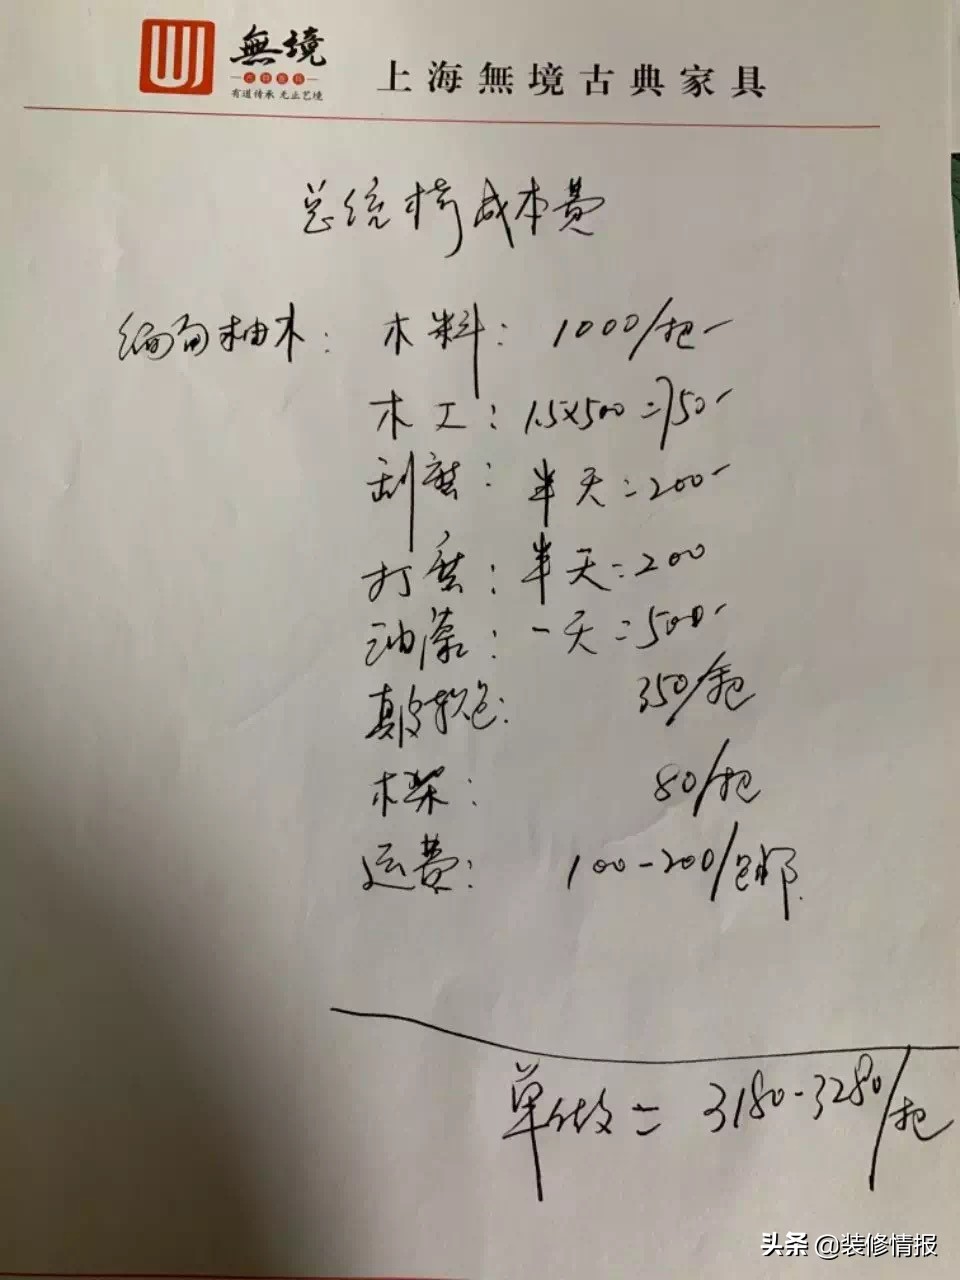 無境
有道传承 无止艺境
上海無境古典家具
总统椅成本费
缅甸柚木: 木料: 1000/把-
木工: 1.5x500=750-
刮磨: 半天=200-
打磨: 半天=200
油漆: 一天=500-
真皮软包: 350/套
木架: 80/把
运费: 100-200/包邮.
单做= 3180-3280/把
头条 @装修情报